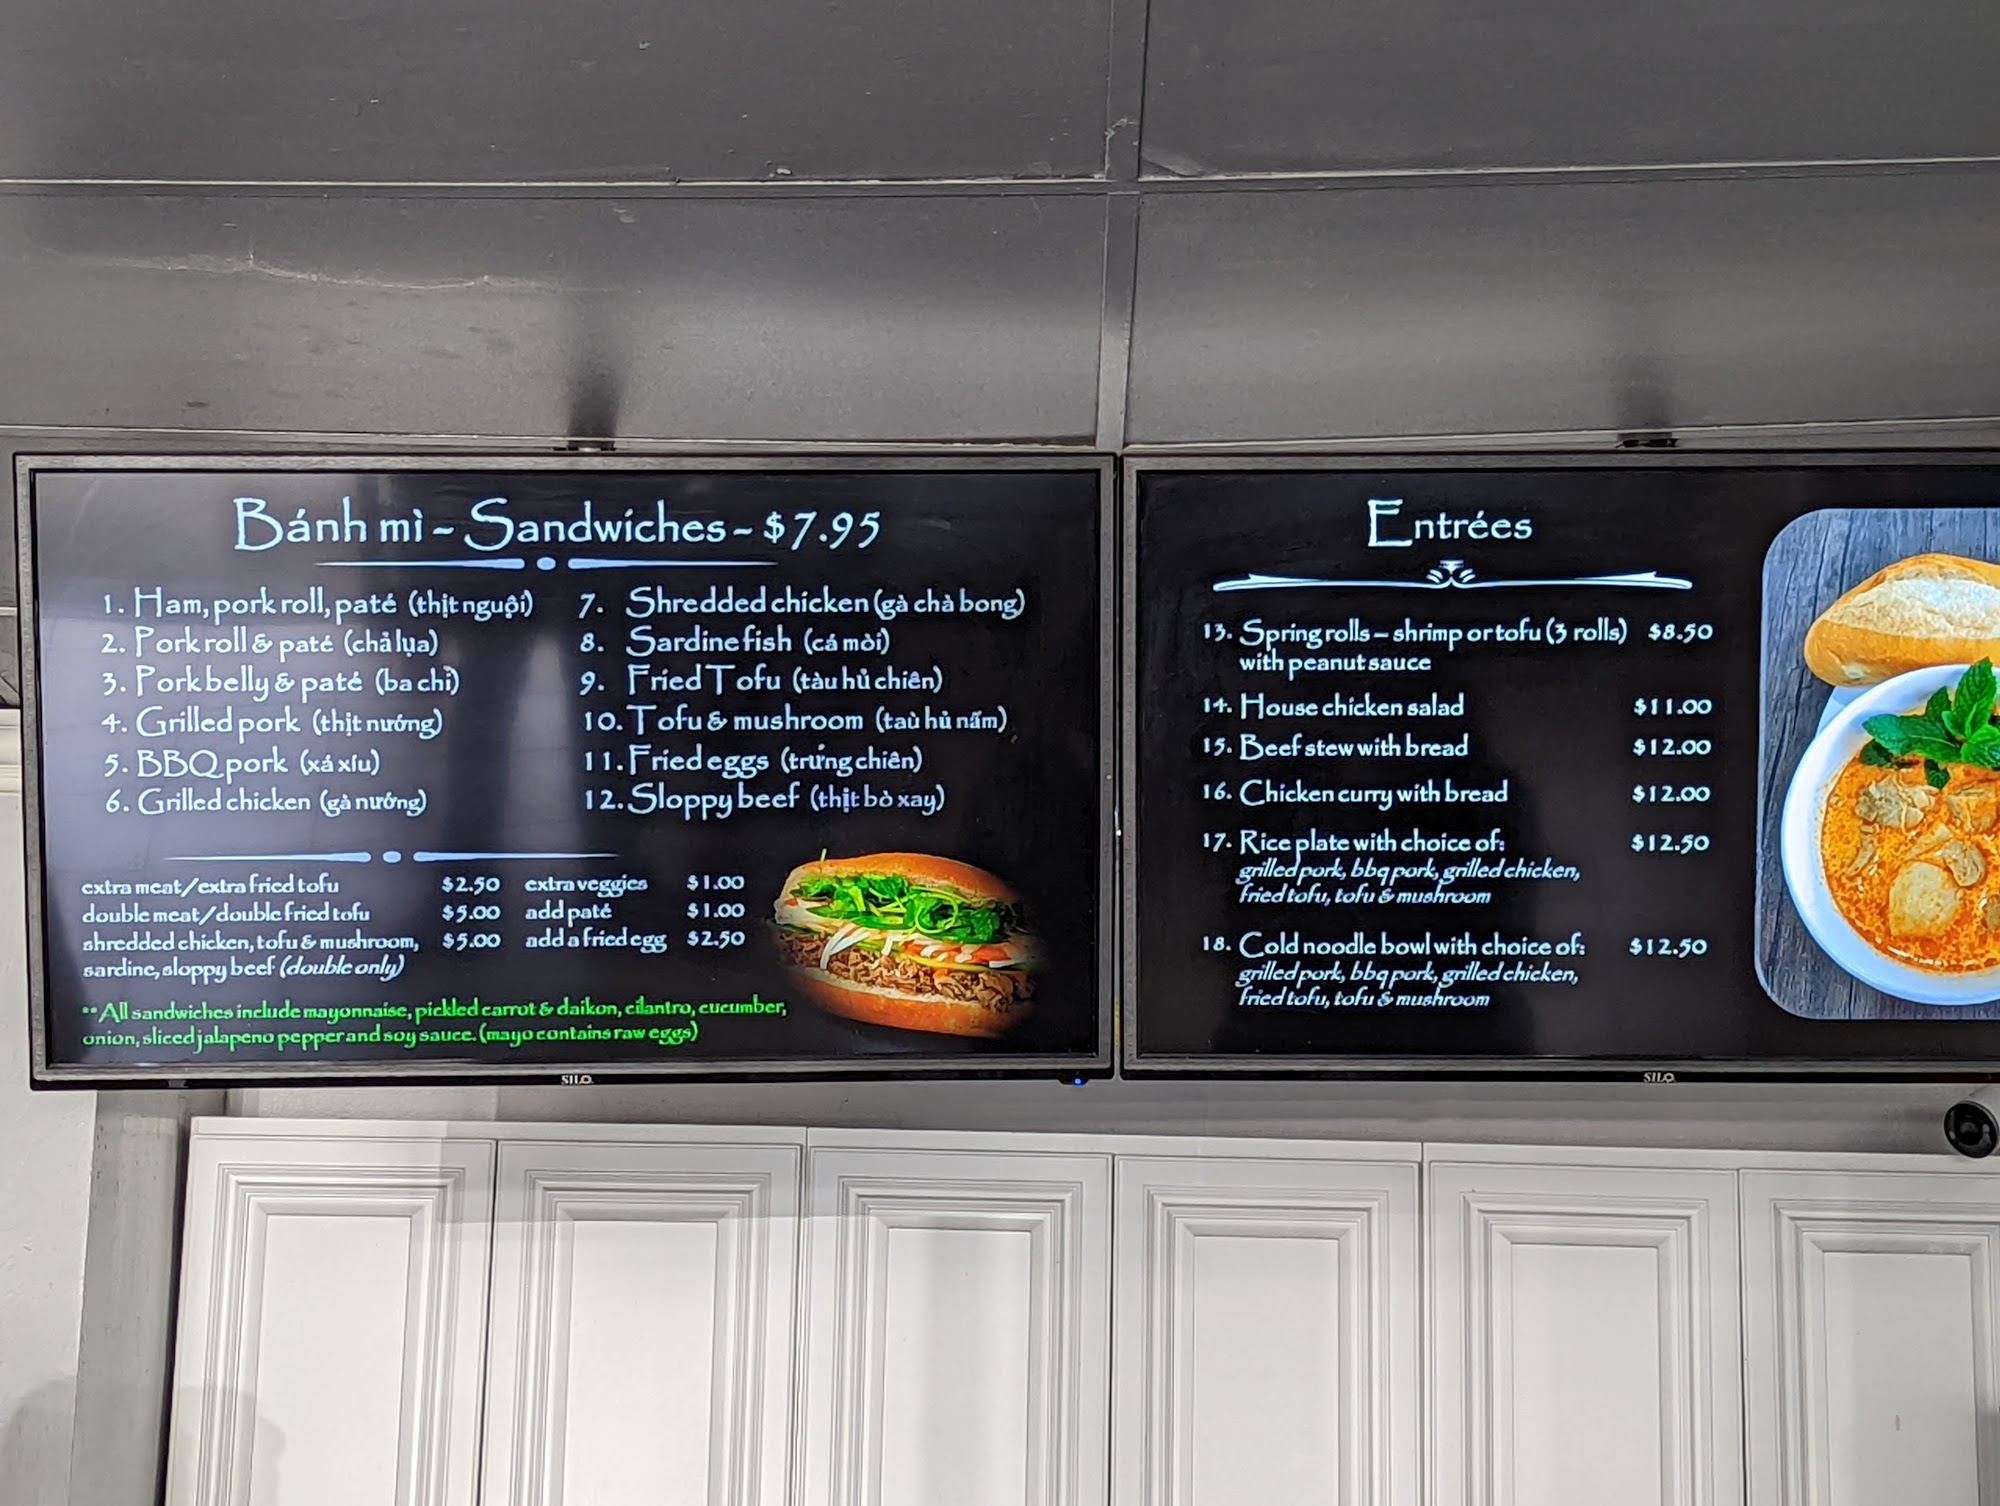 Bánh mì - Sandwiches - $7.95
1. Ham, pork roll, paté (thịt nguội)
2. Pork roll & paté (chả lụa)
3. Pork belly & paté (ba chỉ)
4. Grilled pork (thịt nướng)
5. BBQ pork (xá xíu)
6. Grilled chicken (gà nướng)
7. Shredded chicken (gà chà bong)
8. Sardine fish (cá mòi)
9. Fried Tofu (tàu hủ chiên)
10. Tofu & mushroom (taù hủ nấm)
11. Fried eggs (trứng chiên)
12. Sloppy beef (thịt bò xay)
extra meat/extra fried tofu $2.50
double meat/double fried tofu $5.00
shredded chicken, tofu & mushroom, $5.00
sardine, sloppy beef (double only)
extra veggies $1.00
add paté $1.00
add a fried egg $2.50
**All sandwiches include mayonnaise, pickled carrot & daikon, cilantro, cucumber,
onion, sliced jalapeno pepper and soy sauce. (mayo contains raw eggs)
SILO
Entrées
13. Spring rolls – shrimp or tofu (3 rolls) $8.50
with peanut sauce
14. House chicken salad $11.00
15. Beef stew with bread $12.00
16. Chicken curry with bread $12.00
17. Rice plate with choice of: $12.50
grilled pork, bbq pork, grilled chicken,
fried tofu, tofu & mushroom
18. Cold noodle bowl with choice of: $12.50
grilled pork, bbq pork, grilled chicken,
fried tofu, tofu & mushroom
SILO